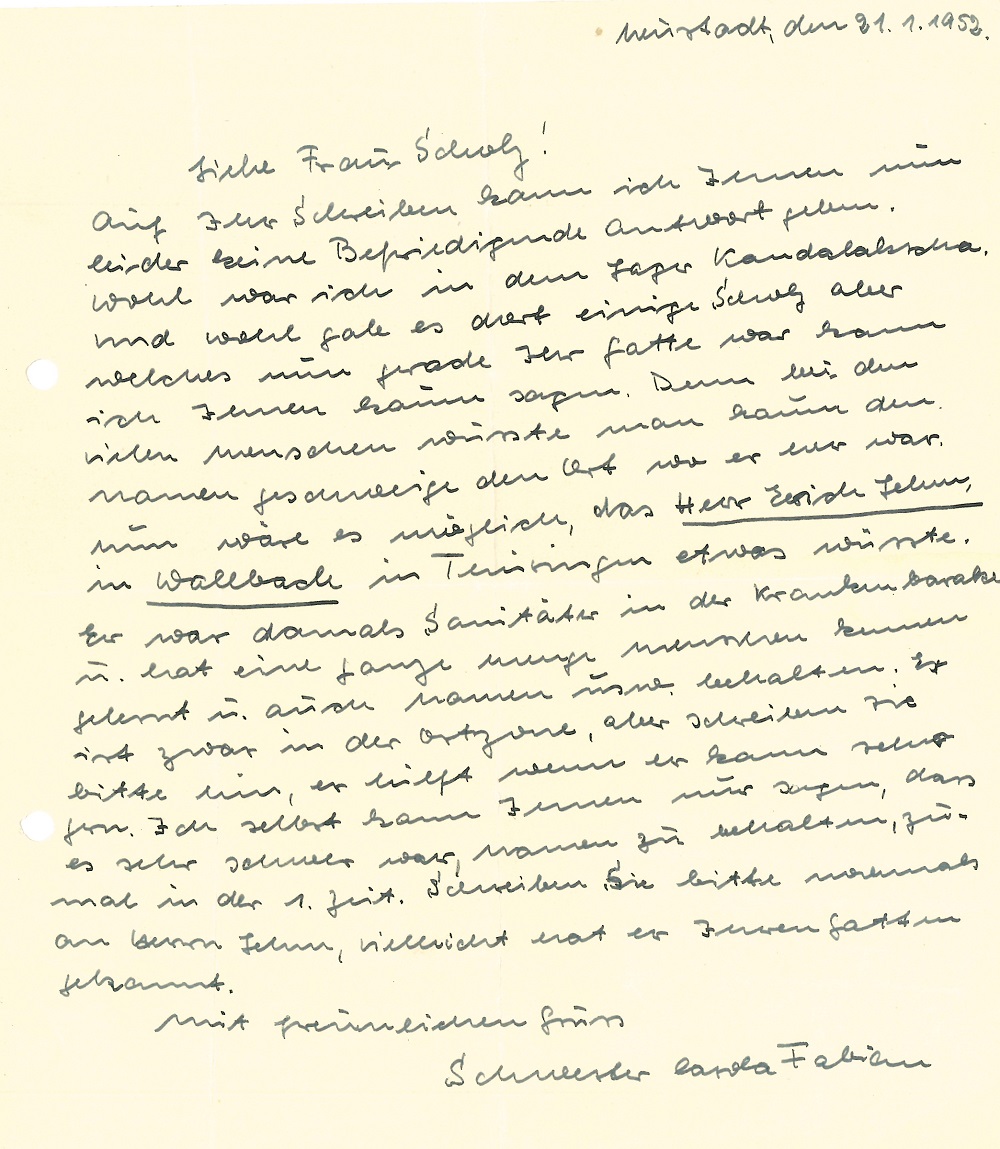 Neustadt, den 21. 1. 1952.
Liebe Frau Scholz!
Auf Ihr Schreiben kann ich Ihnen nun
leider keine Befriedigende Antwort geben.
Wohl war ich in dem Lager Kandalakscha.
und wohl gab es dort einige Scholz aber
welches nun gerade Ihr Gatte war kann
ich Ihnen kaum sagen. Denn bei den
vielen menschen wusste man kaum den
namen geschweige den Ort wo er her war.
nun wäre es möglich, das Herr Erich Lehm,
in Wallbach in Teiningen etwas wüsste.
Er war damals Sanitäter in der Krankenbarake
u. hat eine ganze menge menschen kennen
gelernt u. auch namen usw. behalten. Er
ist zwar in der Ostzone, aber schreiben sie
bitte hin, er hilft wenn er kann sehr
gern. Ich selbst kann Ihnen nur sagen, dass
es sehr schwer war, namen zu behalten, zu-
mal in der 1. Zeit. Schreiben Sie bitte nochmals
an Herrn Lehm, vielleicht hat er Ihren Gatten
gekannt.
Mit freundlichen Gruss
Schwester Fabian